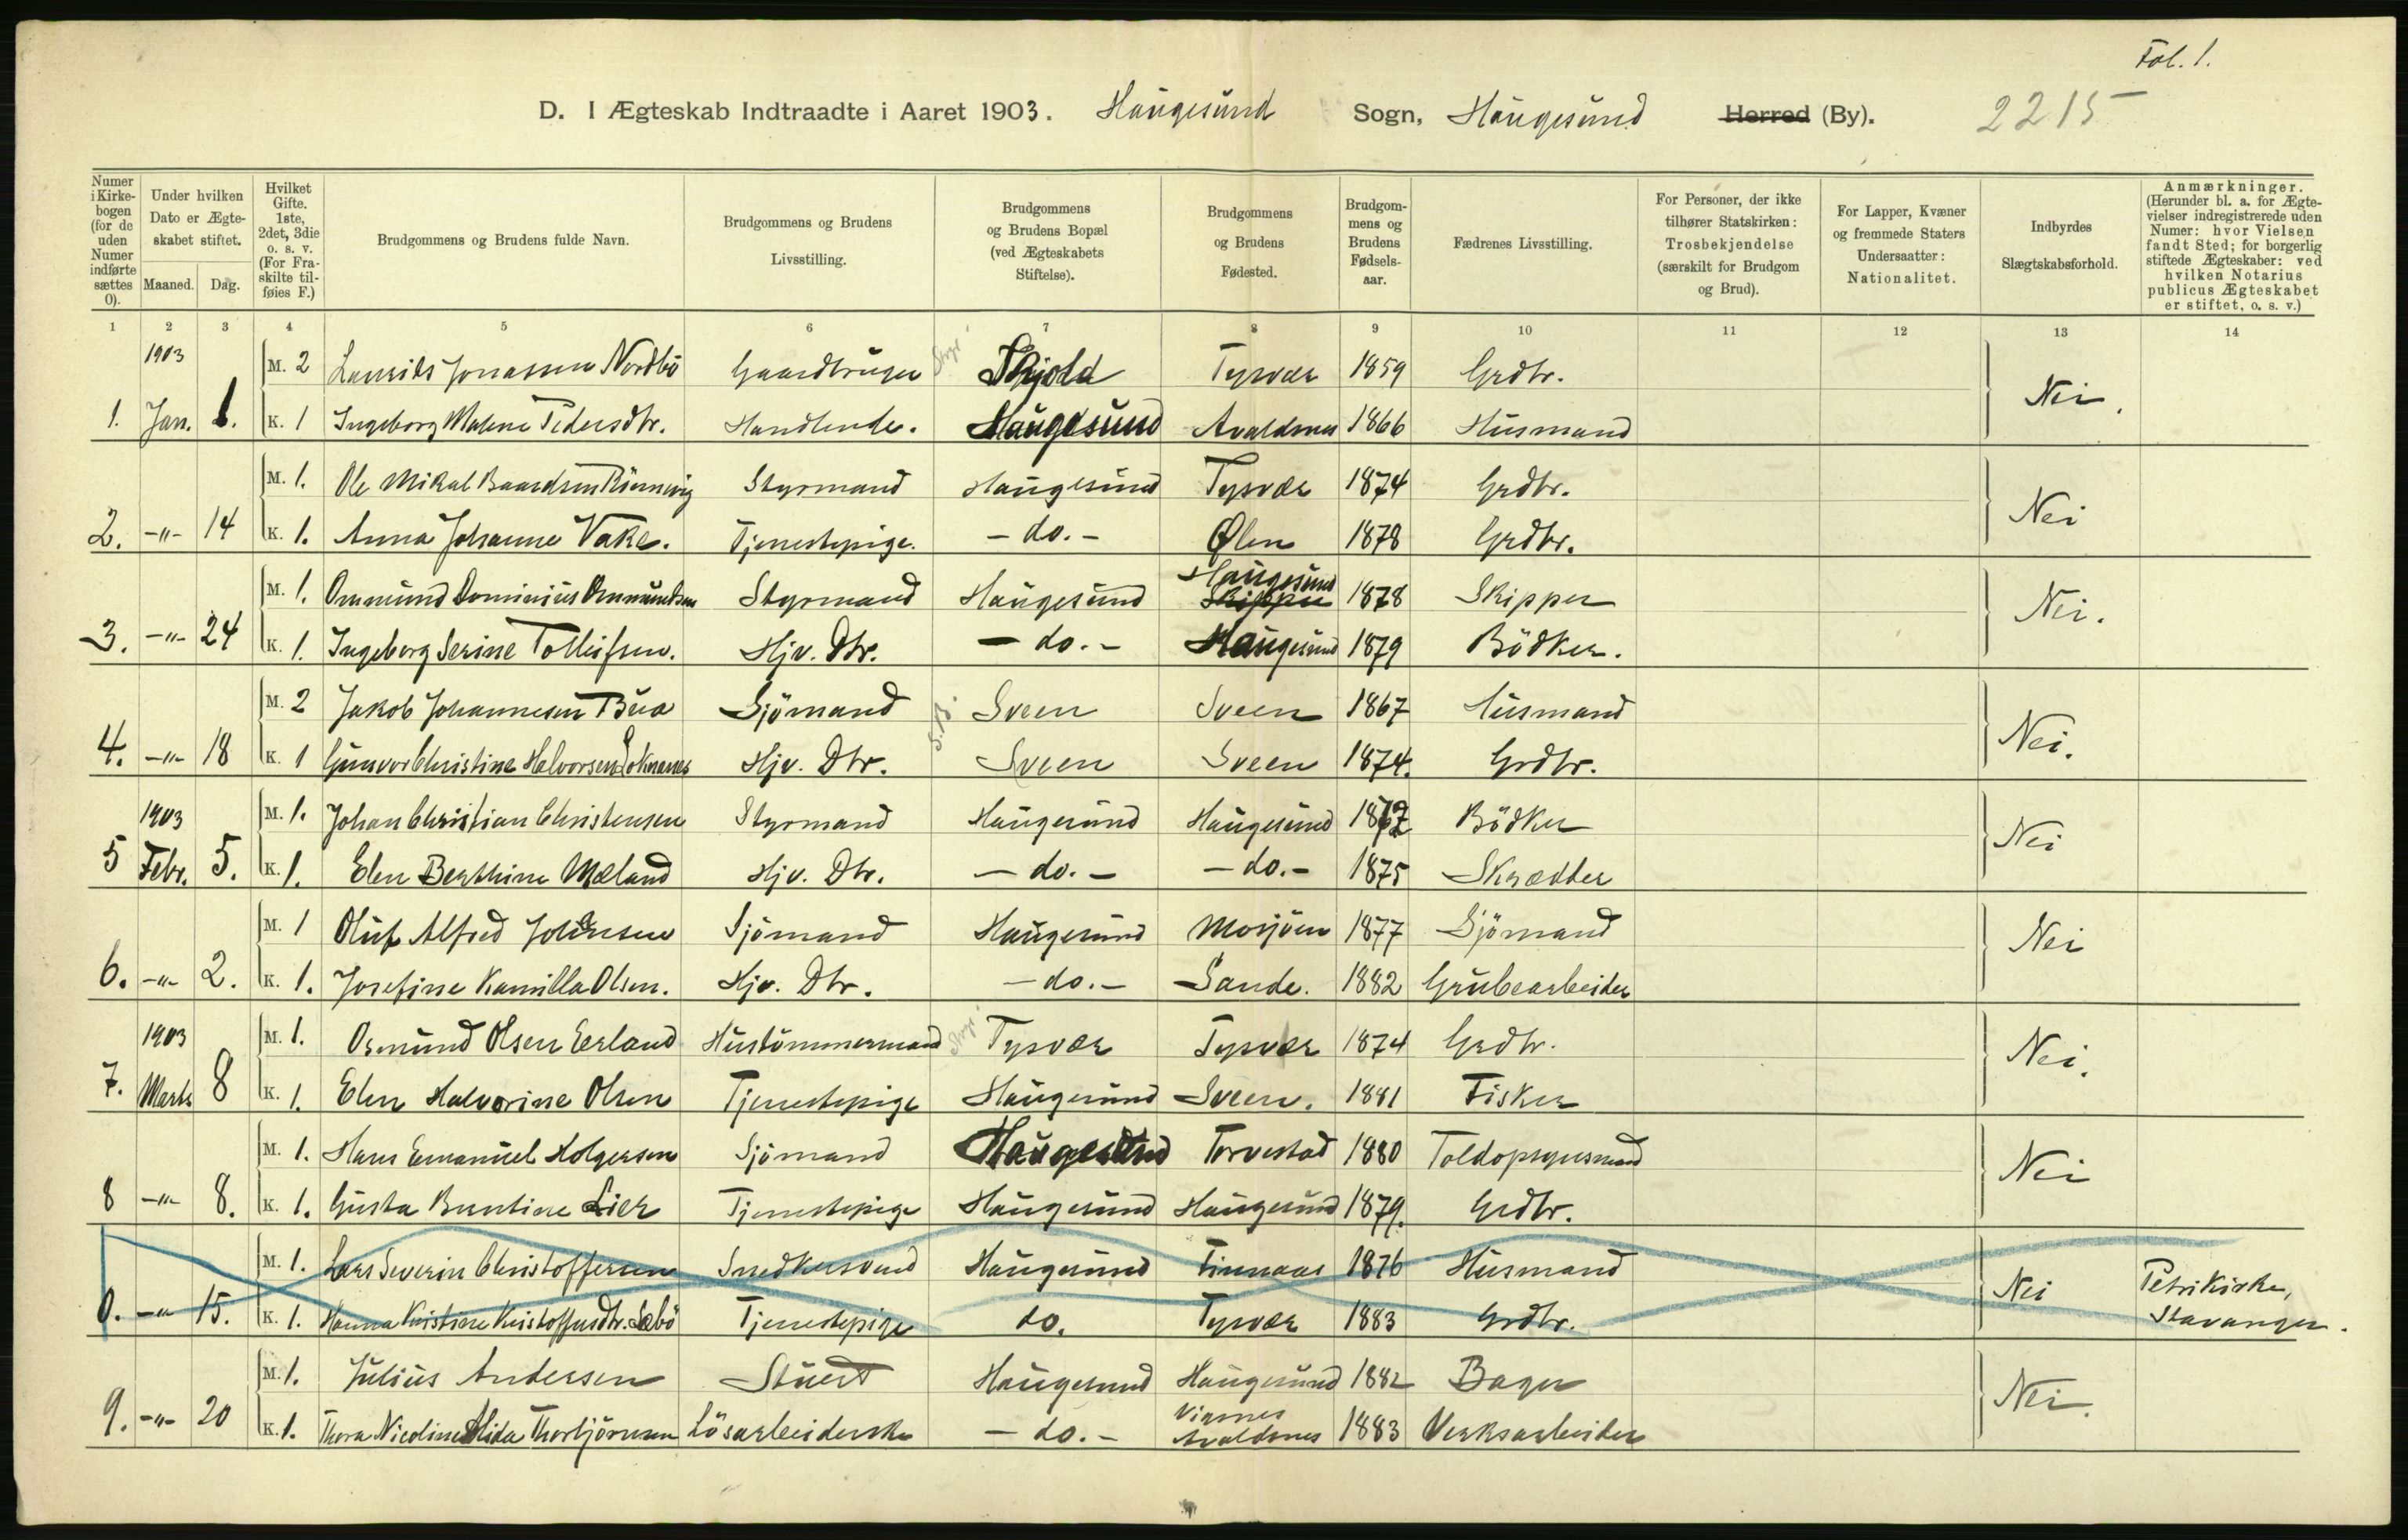 Fol. 1.
D. I Ægteskab Indtraadte i Aaret 1903. Haugesund Sogn, Haugesund Herred (By). 2215
Numer i Kirkebogen (for de uden Numer indførte sættes 0).
Under hvilken Dato er Ægteskabet stiftet.
Maaned. Dag.
Hvilket Gifte. 1ste, 2det, 3die o. s. v. (For Fraskilte tilføies F.)
Brudgommens og Brudens fulde Navn.
Brudgommens og Brudens Livsstilling.
Brudgommens og Brudens Bopæl (ved Ægteskabets Stiftelse).
Brudgommens og Brudens Fødested.
Brudgommens og Brudens Fødselsaar.
Fædrenes Livsstilling.
For Personer, der ikke tilhører Statskirken: Trosbekjendelse (særskilt for Brudgom og Brud).
For Lapper, Kvæner og fremmede Staters Undersaatter: Nationalitet.
Indbyrdes Slægtskabsforhold.
Anmærkninger. (Herunder bl. a. for Ægtevielser indregistrerede uden Numer: hvor Vielsen fandt Sted; for borgerlig stiftede Ægteskaber: ved hvilken Notarius publicus Ægteskabet er stiftet, o. s. v.)
1 2 3 4 5 6 7 8 9 10 11 12 13 14
1903 M. 2 Laurits Jonassen Nordbö Gaardbruger Skjold Tysvær 1859 Grdbr.
1. Jan. 1. K. 1 Ingeborg Malene Pedersdtr. Handlende. Haugesund Avaldsnes 1866 Husmand Nei.
M. 1. Ole Mikal Baardsen Rönnevig Styrmand Haugesund Tysvær 1874 Grdbr.
2. -"- 14 K. 1. Anna Johanne Vake. Tjenestepige. - do. - Ølen 1878 Grdbr. Nei
M. 1. Ommund Dominius Ommundsen Styrmand Haugesund Haugesund Skipper 1878 Skipper
3. -"- 24 K. 1. Ingeborg Serine Tolleifsen. Hjv. Dtr. - do. - Haugesund 1879 Bödker. Nei.
M. 2 Jakob Johannesen Bua Sjömand Sveen Sveen 1867 Husmand
4. -"- 18 K. 1 Gunvor Christine Halvorsen Hjv. Dtr. Sveen Sveen 1874. Grdbr. Nei.
1903 M. 1. Johan Christian Christensen Styrmand Haugesund Haugesund 1872 Bödker
5 Febr. 5. K. 1. Elen Berthine Mæland Hjv. Dtr. - do. - - do. - 1875 Skrædder Nei
M. 1 Oluf Alfred Johansen Sjömand Haugesund Mosjöen 1877 Sjömand
6. -"- 2. K. 1. Josefine Kamilla Olsen. Hjv. Dtr. - do. - Sande. 1882 Grubearbeider Nei
1903 M. 1. Osmund Olsen Erland Hustömmermand Tysvær Tysvær 1874 Grdbr.
7. Marts 8 K. 1. Elen Halvorine Olsen Tjenestepige Haugesund Sveen. 1881 Fisker Nei.
M. 1. Hans Emanuel Holgersen Sjömand Haugesund Torvestad 1880 Toldopsynsmand
8 -"- 8. K. 1. Gusta Buntine Lier Tjenestepige Haugesund Haugesund 1879. Grdbr. Nei
M. 1. Lars Severin Christoffersen Snedkersvend Haugesund Finnaas 1876 Husmand
0. -"- 15. K. 1. Hanna Kristine Kristoffersdtr. Sæbö Tjenestepige do. Tysvær 1883 Grdbr. Nei Petrikirke, Stavanger.
M. 1. Julius Andersen Stuert Haugesund Haugesund 1882 Bager
9. -"- 20 K. 1. Thora Nicoline Alida Thorbjörnsen Lösarbeiderske - do. - Visnes Avaldsnes 1883 Verksarbeider Nei.